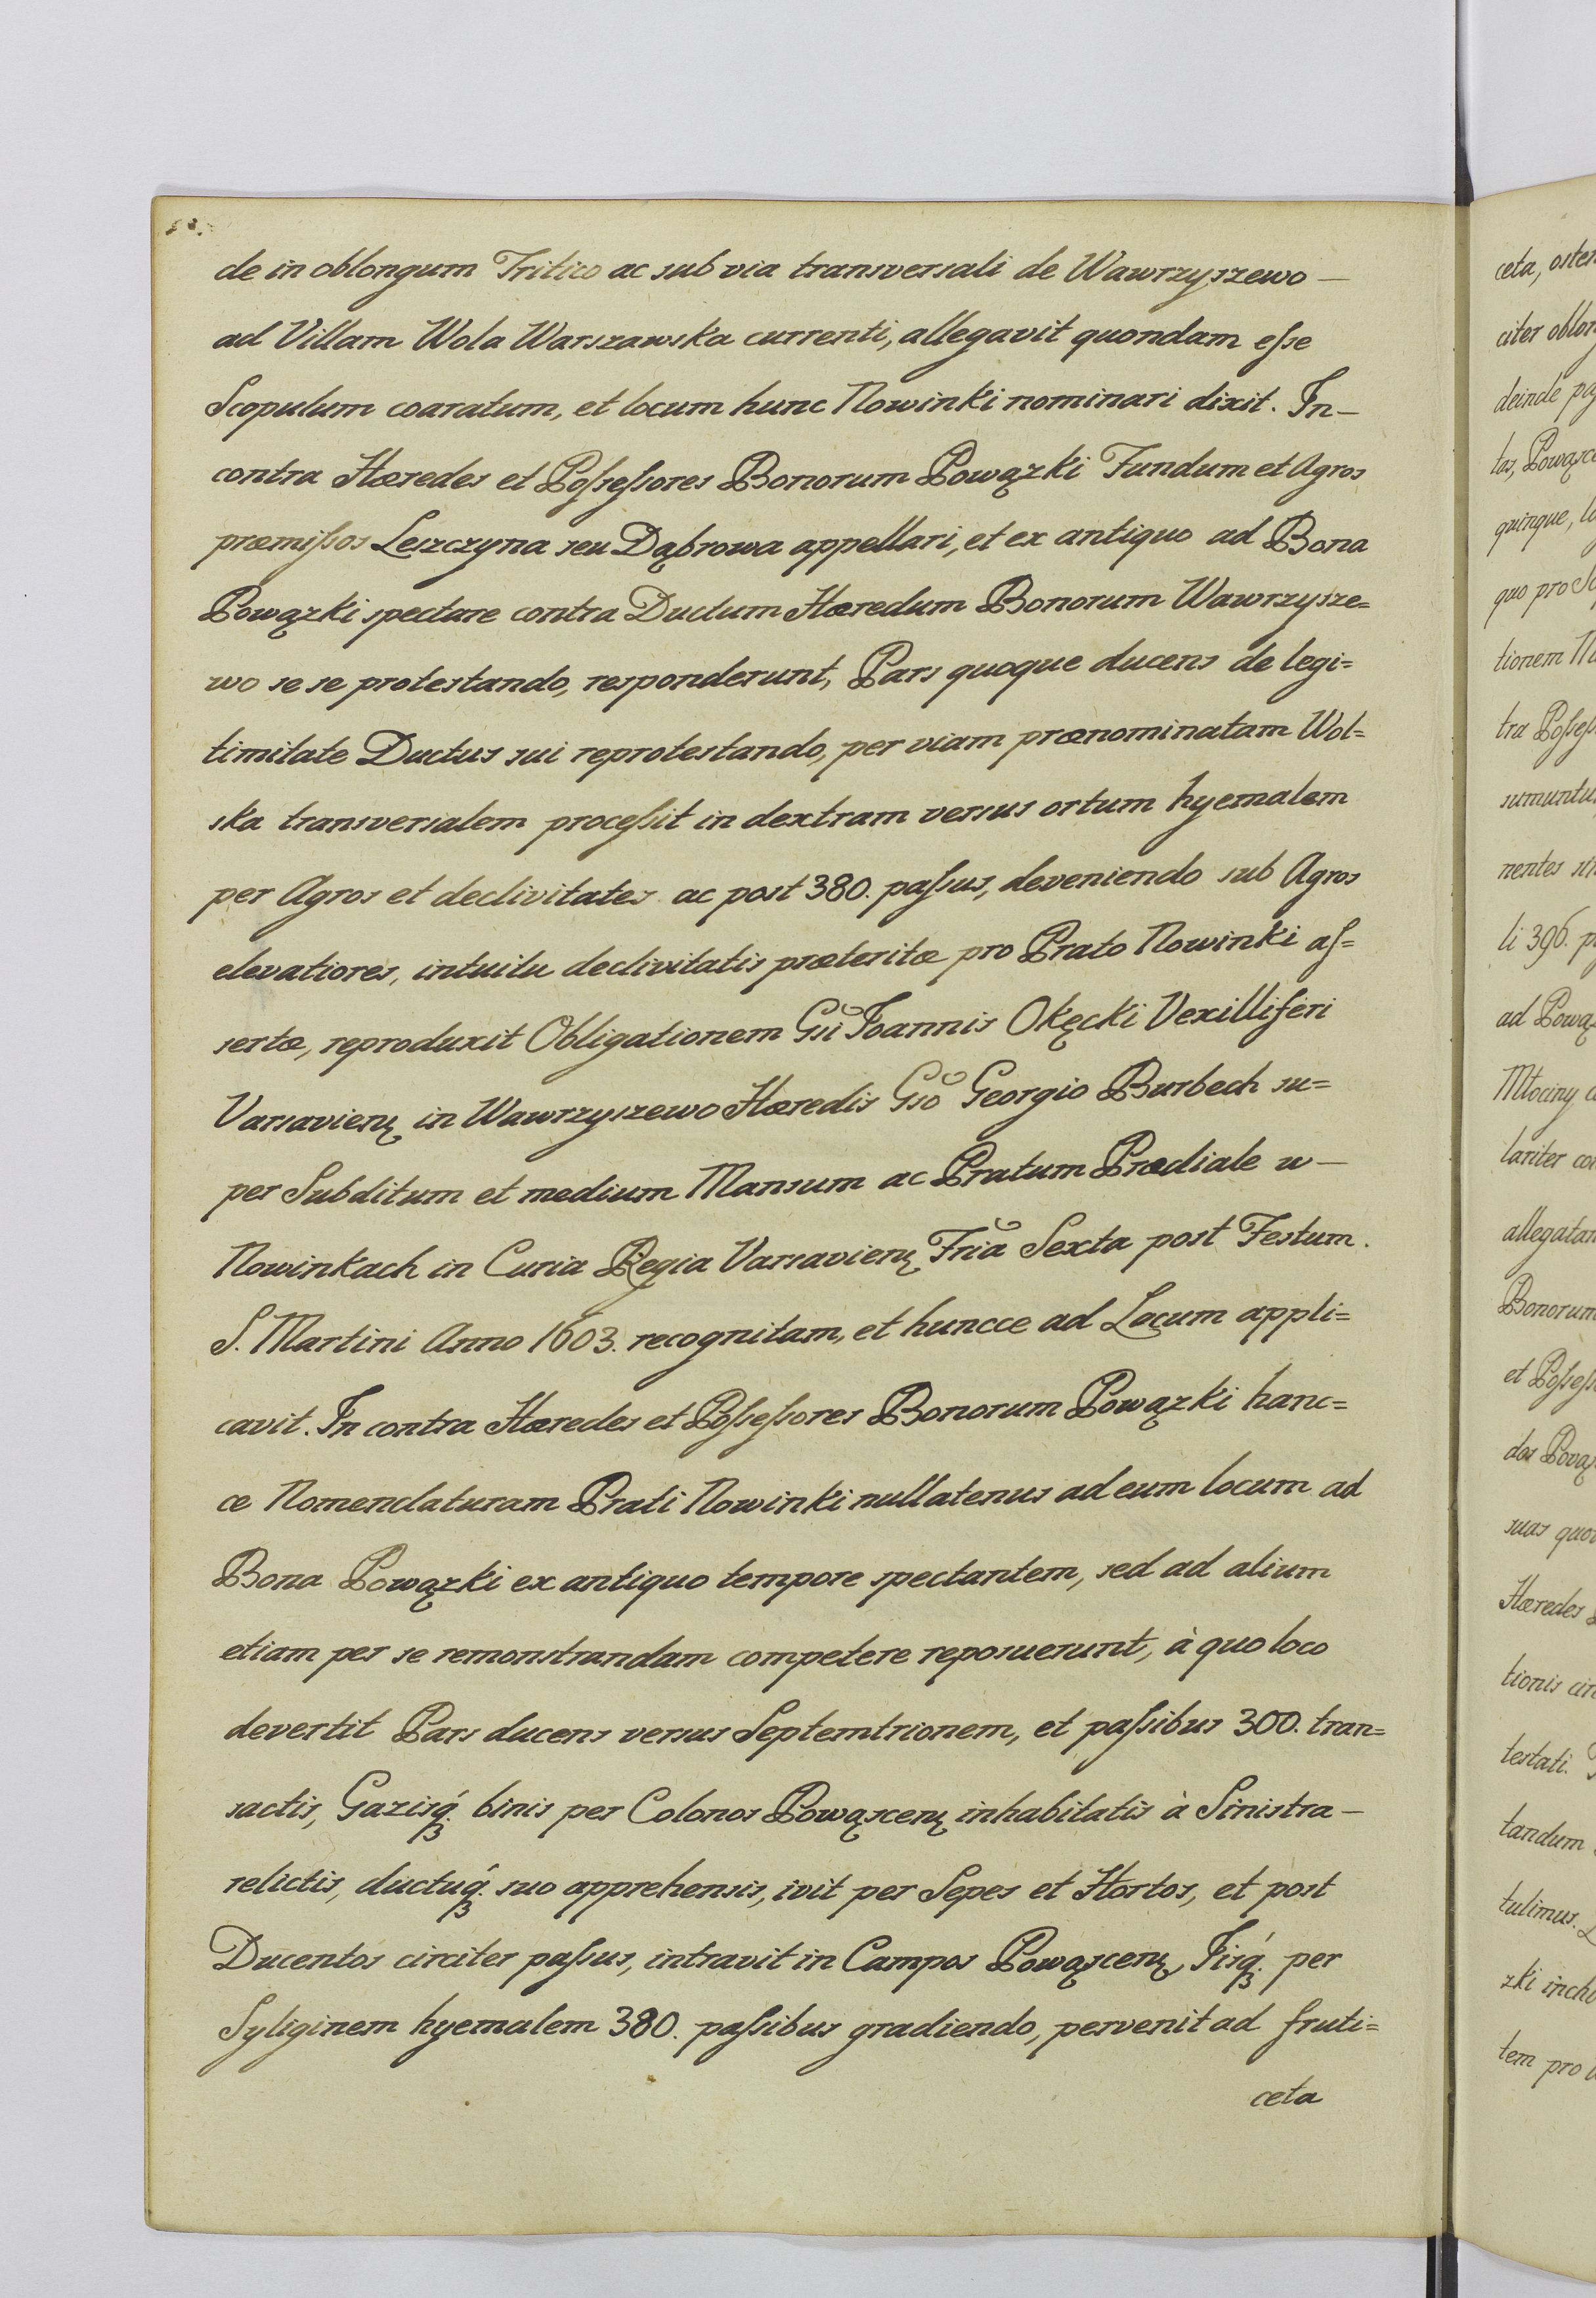 de in oblongum Tritico ac sub via transversali de Wawrzyszewo —
ad Villam Wola Warszawska currenti, allegavit quondam eſse
Scopulum coaratum, et locum hunc Nowinki nominari dixit. In—
contra Hæredes et Poſseſsores Bonorum Powązki Fundum et Agros
præmiſsos Leszczyna seu Dąbrowa appellari, et ex antiquo ad Bona
Powązki spectare contra Ductum Hæredum Bonorum Wawrzysze=
wo se se protestando, responderunt, Pars quoque ducens de legi=
timitate Ductus sui reprotestando, per viam prænominatam Wol=
ska transversalem proceſsit in dextram versus ortum hyemalem
per Agros et declivitates ac post 380. paſsus, deveniendo sub Agros
elevatiores, intuitu declivitatis præteritæ pro Prato Nowinki aſ=
sertæ, reproduxit Obligationem Gsi Ioannis Okęcki Vexilliferi
Varsavien in Wawrzyszewo Hæredis Gso Georgio Burbech su=
per Subditum et medium Mansum ac Pratum Prædiale w —
Nowinkach in Curia Regia Varsavien Fria Sexta post Festum.
S. Martini Anno 1603. recognitam, et huncce ad Locum appli=
cavit. In contra Hæredes et Poſseſsores Bonorum Powązki hanc=
ce Nomenclaturam Prati Nowinki nullatenus ad eum locum ad
Bona Powązki ex antiquo tempore spectantem, sed ad alium
etiam per se remonstrandam competere reposuerunt, à quo loco
devertit Pars ducens versus Septemtrionem, et paſsibus 300. tran=
sactis, Gazisq́. binis per Colonos Powąscen inhabitatis à Sinistra —
relictis, ductuq́. suo apprehensis, ivit per Sepes et Hortos, et post
Ducentos circiter paſsus, intravit in Campos Powąscen, Iisq́. per
Syliginem hyemalem 380. paſsibus gradiendo, pervenit ad fruti=
ceta
ceta,
citer
deinde
quinque,
quo pro
tionem
tra
nentes
li 396.
ad
Młociny
lariter
Bonorum
et
suas
Hæredes
tionis
testati.
tandum
tulimus.
zki
tem pro